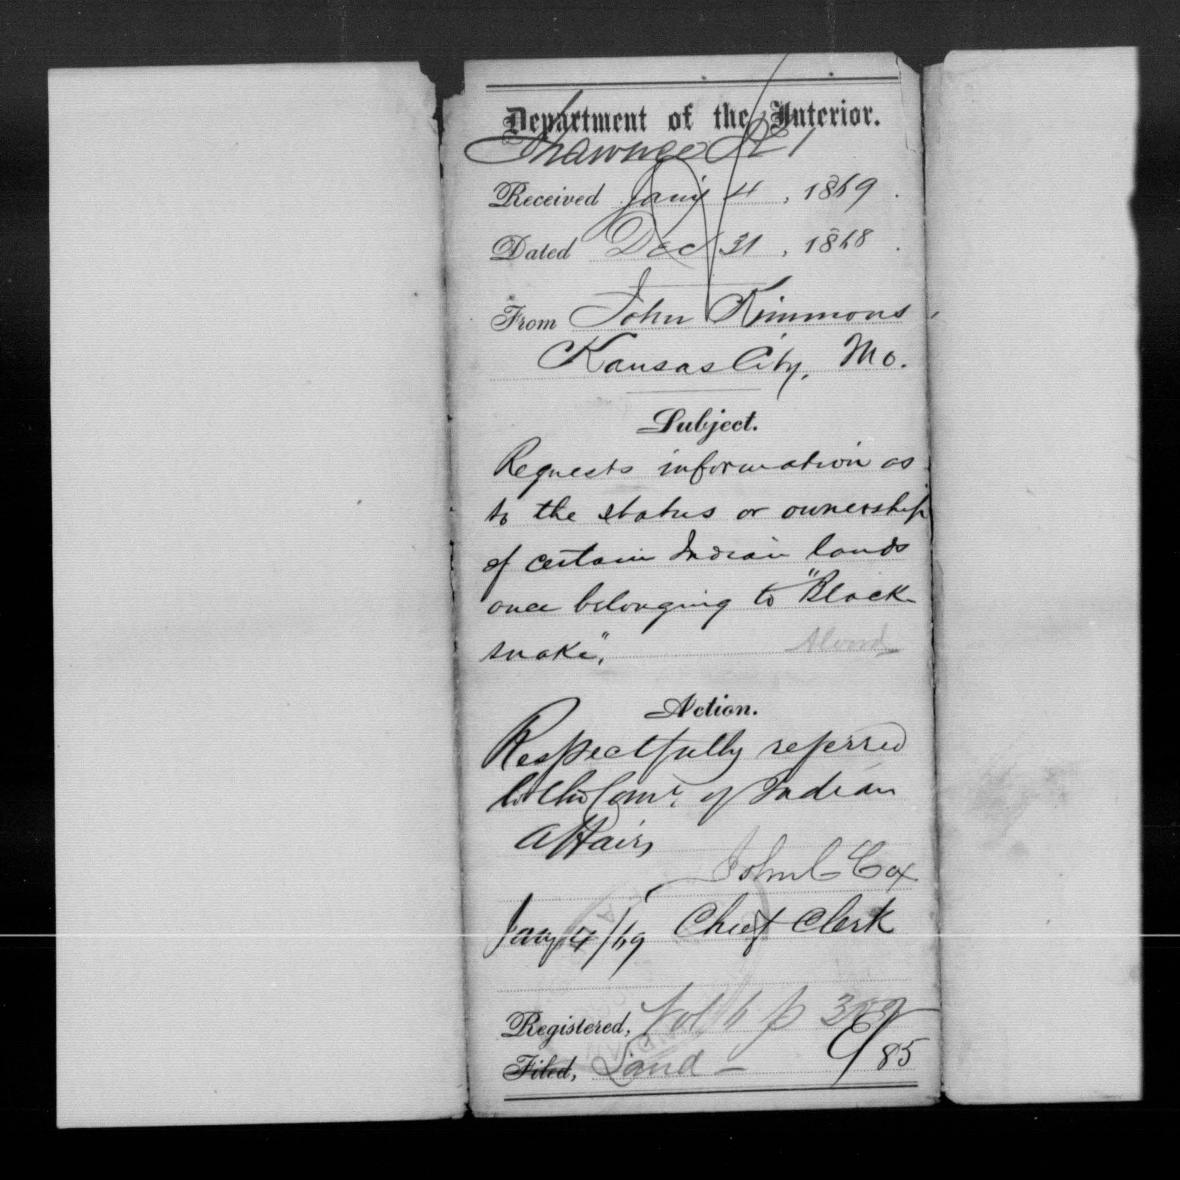 Department of the Interior.
Shawnee
Received Jany 4, 1869.
Dated Dec 31, 1868.
From John Kimmons,
Kansas City, Mo.
Subject.
Requests information as
to the status or ownership
of certain Indian lands
once belonging to "Black
snake".
Alvord
Action.
Respectfully referred
to the Comr. of Indian
Affairs
John C Cox
Jany 4/69 Chief Clerk
Registered, Vol p
Filed, Land - C/85